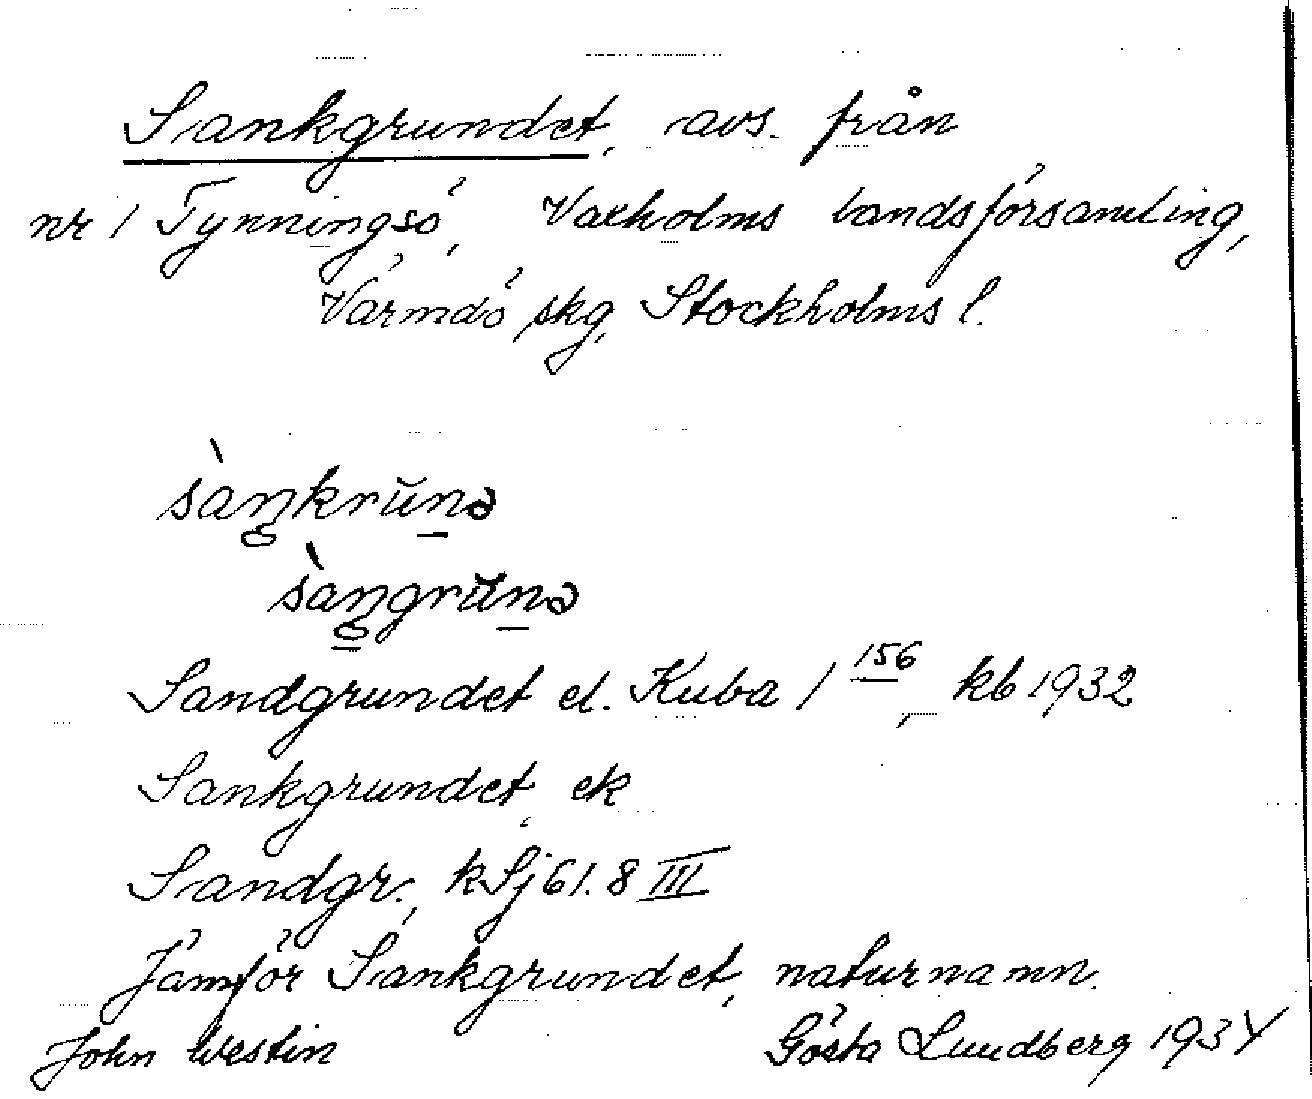 Sankgrundet, avs. från
nr 1 Tynningsö, Vaxholms landsförsamling,
Värmdö skg, Stockholms l.
sàŋkrŭnə
sàŋgrŭnə
Sandgrundet el. Kuba 1 156, kb 1932
Sankgrundet ek
Sandgr., kSj 61.8 III
Jämför Sankgrundet, naturnamn.
John Westin Gösta Lundberg 1934